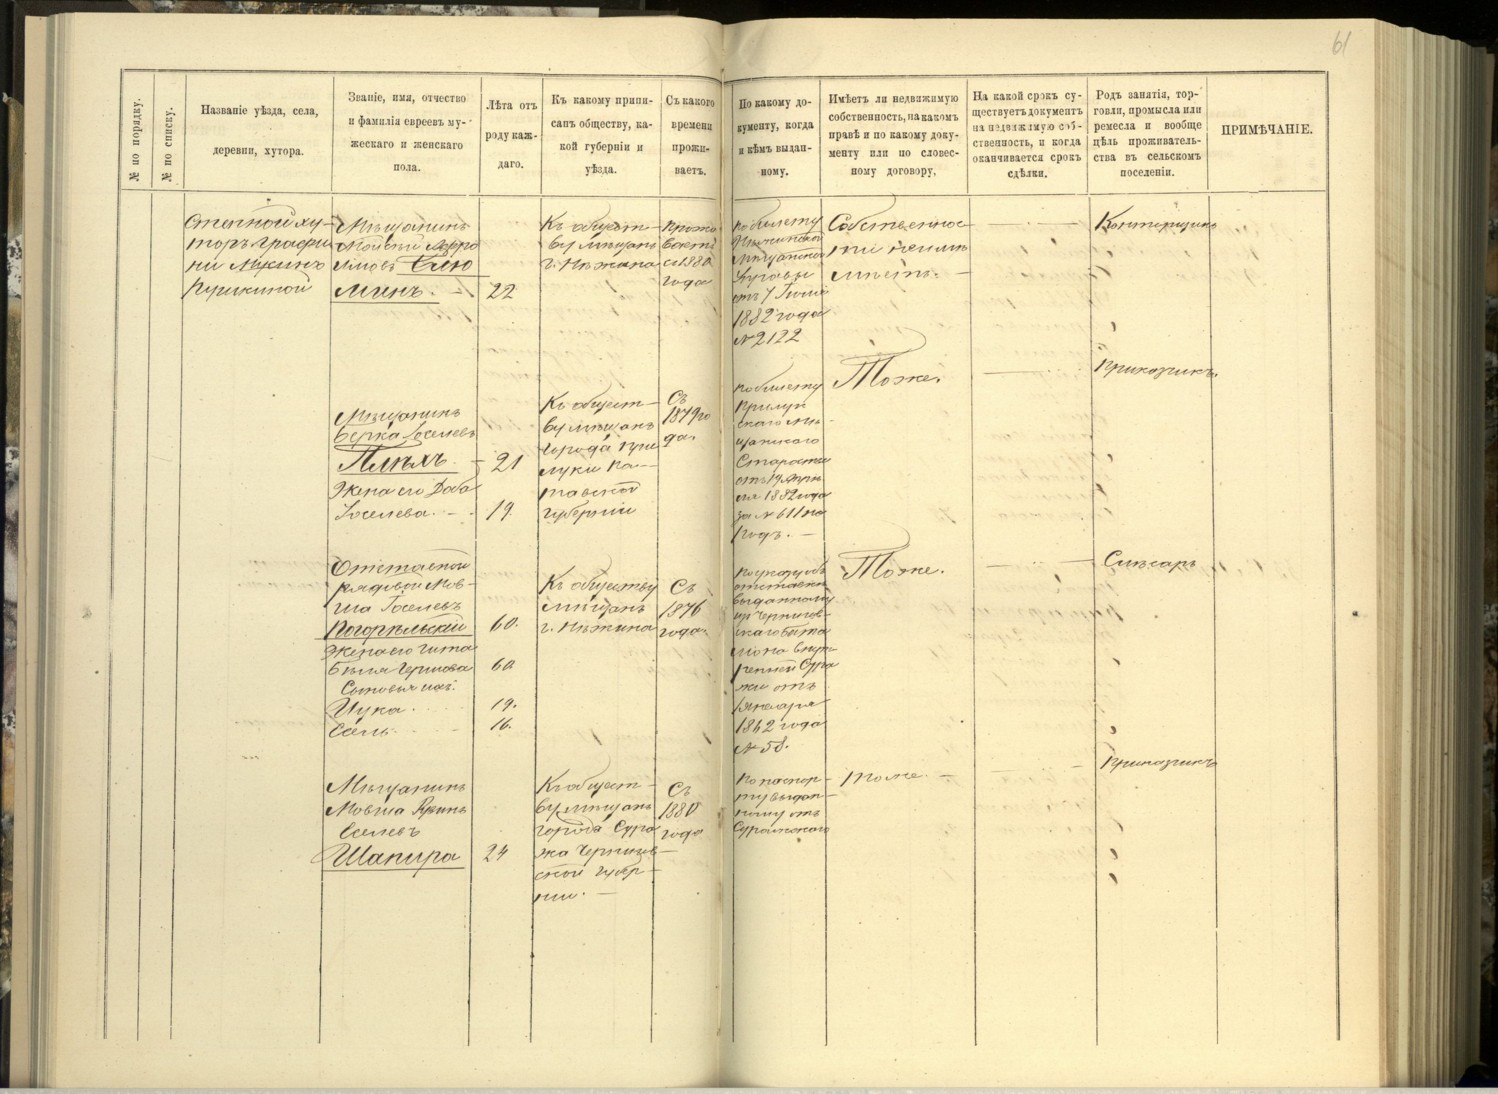 61
№ по порядку.
№ по списку.
Названіе уѣзда, села,
деревни, хутора.
Званіе, имя, отчество
и фамилія евреевъ му-
жескаго и женскаго
пола.
Лѣта отъ
роду каж-
даго.
Къ какому припи-
санъ обществу, ка-
кой губерніи и
уѣзда.
Съ какого
времени
прожи-
ваетъ.
По какому до-
кументу, когда
и кѣмъ выдан-
ному.
Имѣетъ ли недвижимую
собственность, на какомъ
правѣ и по какому доку-
менту или по словес-
ному договору.
На какой срокъ су-
ществуетъ документъ
на недвижимую соб-
ственность, и когда
оканчивается срокъ
сдѣлки.
Родъ занятія, тор-
говли, промысла или
ремесла и вообще
цѣль проживатель-
ства въ сельскомъ
поселеніи.
ПРИМѢЧАНІЕ.
Степной ху-
торъ Графи
ни Мусиной
Пушкиной
Мѣщанинъ
минъ. 22
Къ общест-
ву мѣщанъ
г. Нѣжина
Прожи
ваетъ
съ 1880
года
По билету
Нѣжинской
Мѣщанской
Управы
отъ 7 Іюля
1882 года
№ 2122
Собственнос
ти не имѣ
ѣтъ.
Конторщикъ
Мѣщанинъ
Берка Іоселевъ
Плѣхъ. 21
Жена его Доба
Іоселева. 19.
Къ общест-
ву мѣщанъ
города При
луки По-
лтавской
Губерніи
Съ
1879 го
да.
По билету
Прилук
скаго Мѣ-
щанскаго
Старосты
отъ 19 Апрѣ
ля 1882 года
за № 611 на
годъ.
Тоже.
Приказчикъ.
Отставной
рядовой Мов-
ша Іоселевъ
Погорѣльскій 60.
Жена его
Бейля 60
Сыновья ихъ:
Цука 19.
16.
Къ обществу
мѣщанъ
г. Нѣжина
Съ
1876
года.
По указу объ
отставкѣ
выданному
изъ Чернигов-
скаго бата
ліона внут
ренней Стра
жи отъ
Января
года
№ 58.
Тоже.
Слѣсаръ
Мѣщанинъ
Мовша
Еселевъ
Шапира 24
Къ общест-
ву мѣщанъ
города Сура
жа Чернигов-
ской Губер-
ніи.
Съ
1880
года
По паспор-
ту выдан-
ному отъ
Суражскаго
тоже.
Приказчикъ